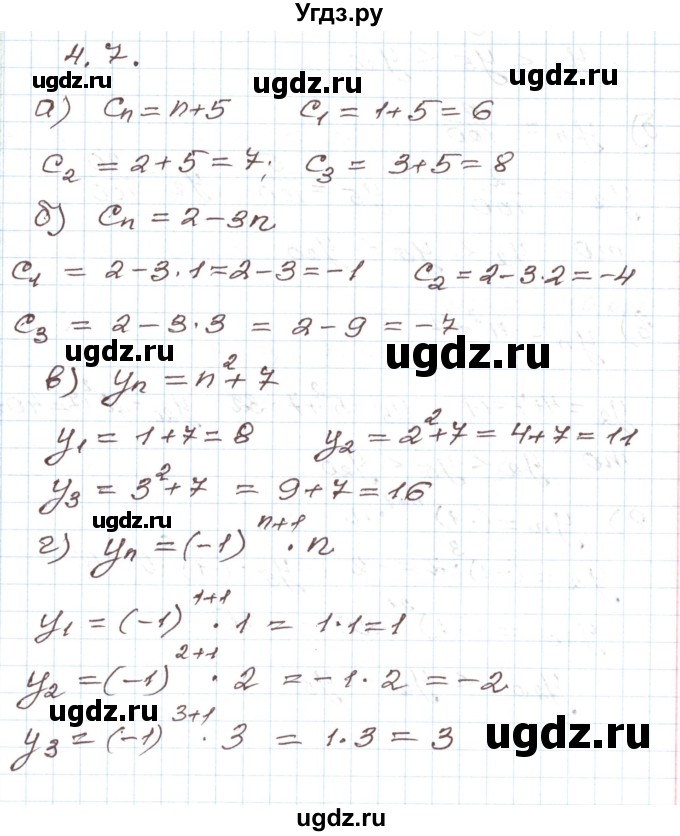 Угдз.ру
4.7.
ugdz.ru ugdz.ru ugdz.ru
а) Cₙ = n+5 C₁ = 1+5 = 6
C₂ = 2+5 = 7; C₃ = 3+5 = 8
б) Cₙ = 2-3n
C₁ = 2-3·1=2-3=-1 C₂=2-3·2=-4
C₃ = 2-3·3 = 2-9 = -7
ugdz.ru ugdz.ru
в) yₙ = n²+7
y₁ = 1+7=8 y₂ = 2²+7 = 4+7=11
y₃ = 3²+7 = 9+7=16
ugdz.ru
г) yₙ = (-1)ⁿ⁺¹ · n
y₁ = (-1)¹⁺¹ · 1 = 1·1=1
y₂ = (-1)²⁺¹ · 2 = -1·2 = -2
ugdz.ru
y₃ = (-1)³⁺¹ · 3 = 1·3 = 3
ugdz.ru
ugdz.ru